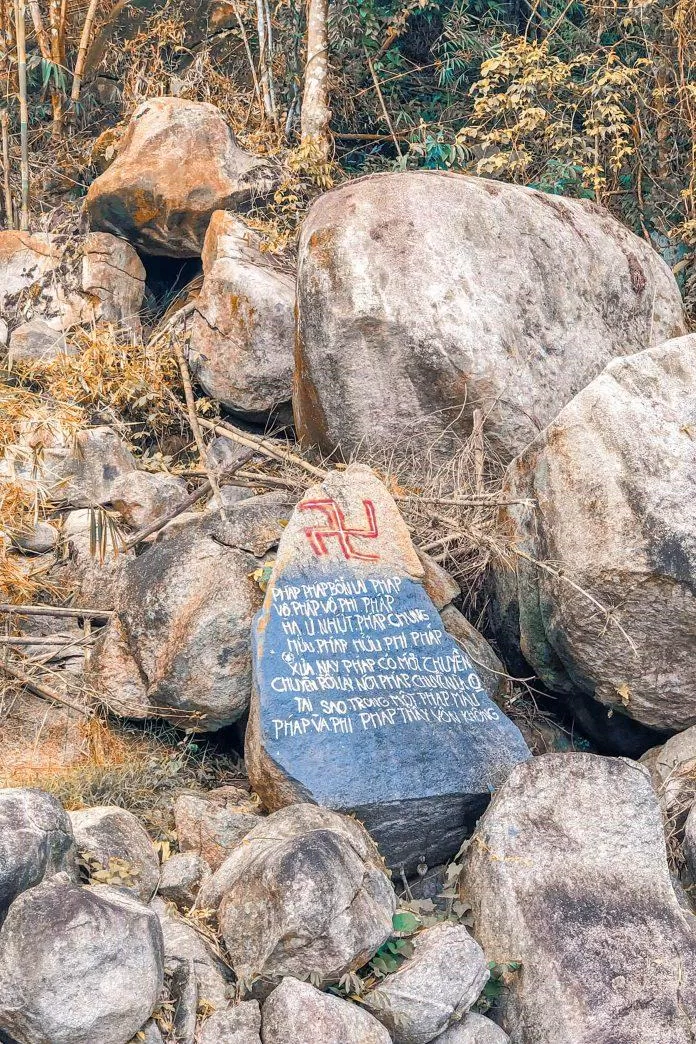 卍
PHÁP PHÁP BỔN LAI PHÁP
VÔ PHÁP VÔ PHI PHÁP
HÀ U NHỨT PHÁP CHUNG
HỮU PHÁP HỮU PHI PHÁP
XƯA NAY PHÁP CÓ MỖI CHUYỆN
CHUYỆN RỒI LẠI NÓI PHÁP CHUYỆN
TẠI SAO TRONG MỘT PHÁP MÀ
PHÁP VÀ PHI PHÁP THẢY VỐN KHÔNG